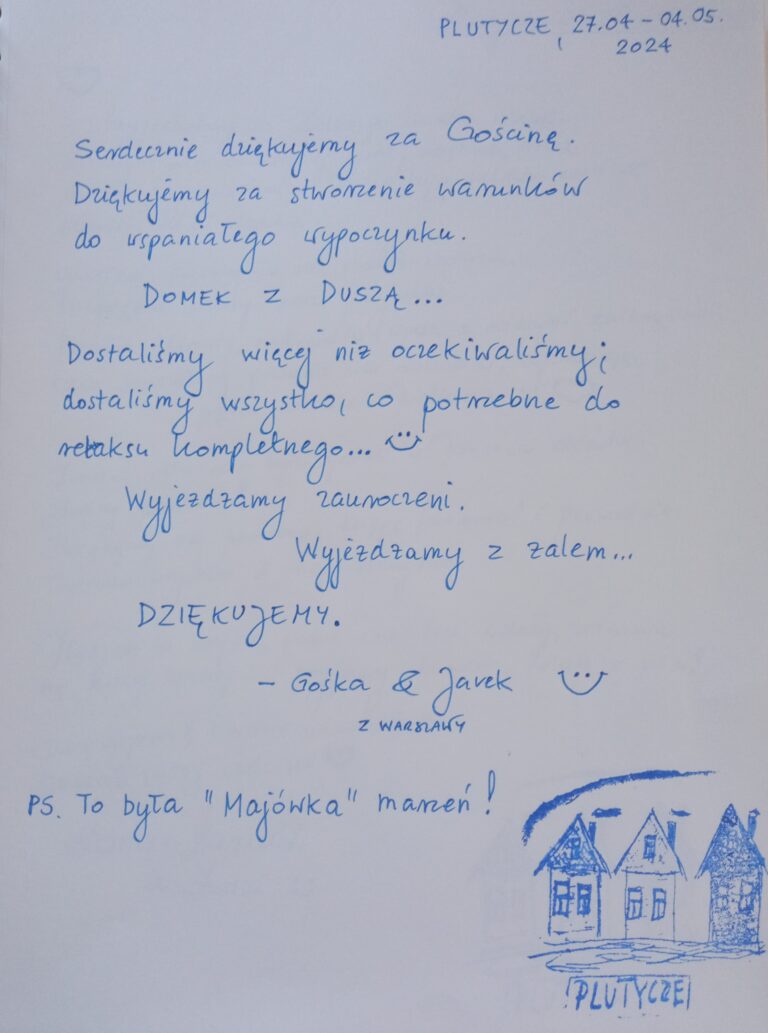 PLUTYCZE, 27.04 – 04.05.
2024
Serdecznie dziękujemy za Gościnę.
Dziękujemy za stworzenie warunków
do wspaniałego wypoczynku.
DOMEK Z DUSZĄ...
Dostaliśmy więcej niż oczekiwaliśmy;
dostaliśmy wszystko, co potrzebne do
relaksu kompletnego...
Wyjeżdżamy zauroczeni.
Wyjeżdżamy z żalem...
DZIĘKUJEMY.
– Gośka & Jarek
Z WARSZAWY
PS. To była "Majówka" marzeń!
PLUTYCZE